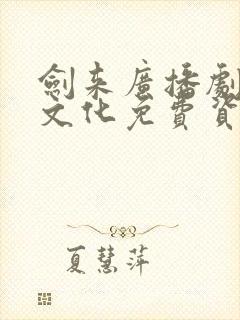 劍来廣播劇
文化免費資
夏慧萍